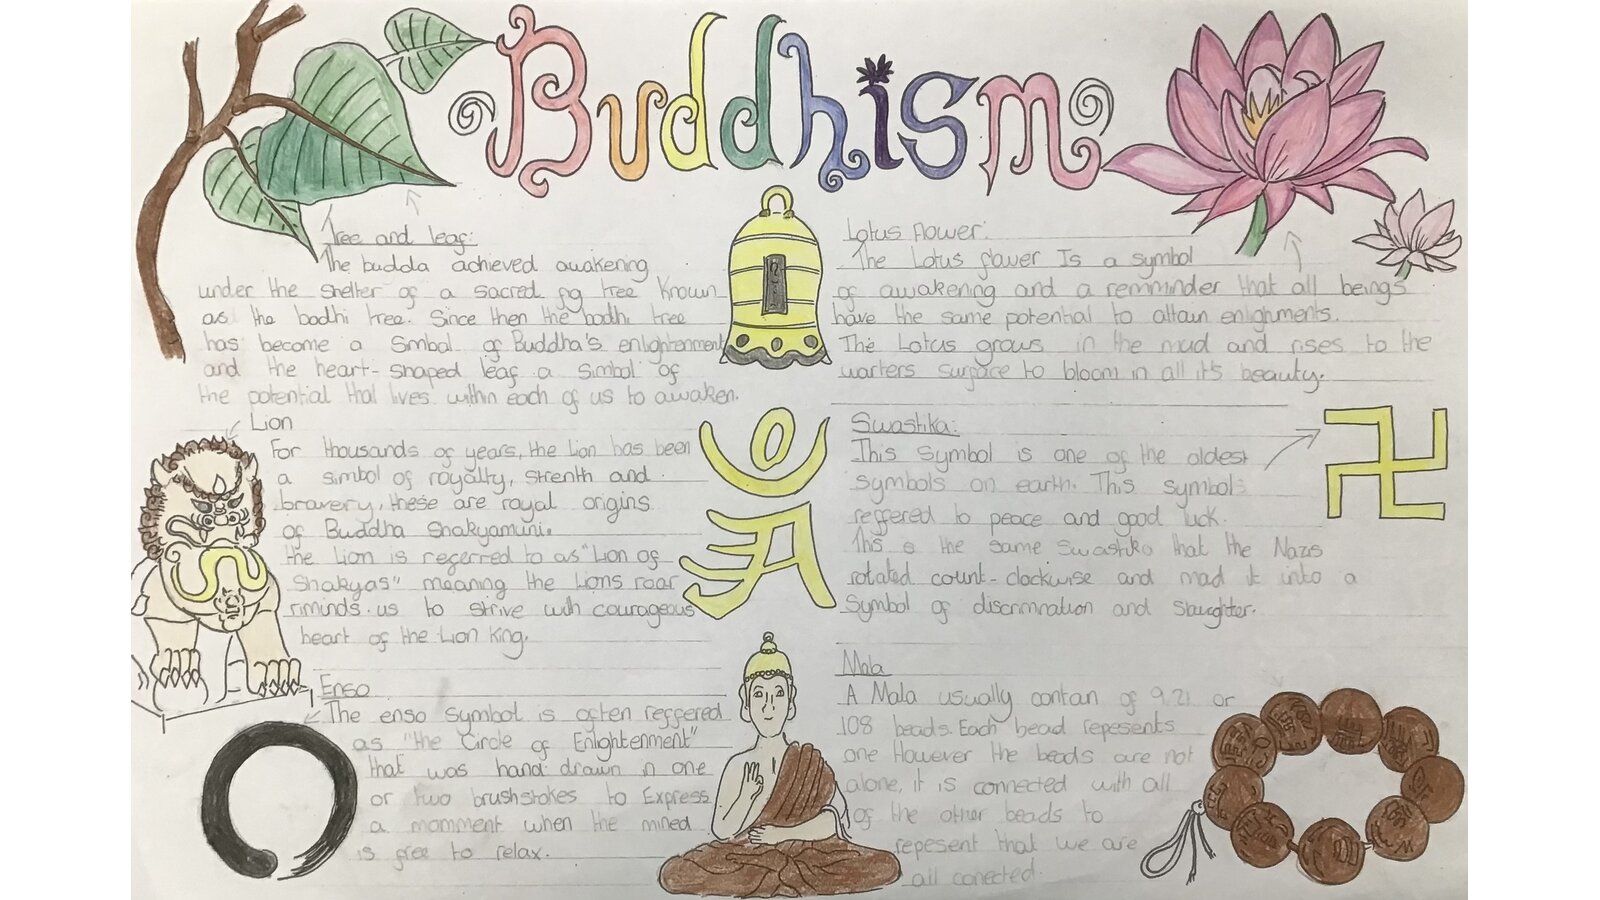 Buddhism
Tree and leaf:
The budda achieved awakening
under the shelter of a sacred fig tree Known
as the bodhi tree. Since then the bodhi tree
has become a Simbol of Buddha's enlightenment
and the heart-shaped leaf a simbol of
the potential that lives within each of us to awaken.
Lion
For thousands of years, the Lion has been
a simbol of royalty, strenth and
bravery, these are royal origins
of Buddha Shakyamuni.
the Lion is referred to as "Lion of
Shakyas" meaning the Lions roar
riminds us to strive with courageous
heart of the Lion king.
Enso
The enso symbol is often reffered
as "the Circle of Enlightenment"
that was hand drawn in one
or two brushstokes to Express
a momment when the mined
is free to relax.
Lotus flower:
The Lotus flower Is a symbol
of awakening and a remminder that all beings
have the same potential to attain enlighments.
The Lotus grows in the mud and rises to the
warters surface to bloom in all it's beauty.
Swastika:
This Symbol is one of the oldest
symbols on earth. This symbol
reffered to peace and good luck.
This is the same Swastika that the Nazis
rotated count-clockwise and mad it into a
Symbol of discrimnation and slaughter.
Mala
A Mala usually contan of 9.21 or
108 beads. Each bead repesents
one However the beads are not
alone, it is connected with all
of the other beads to
repesent that we are
all conected.